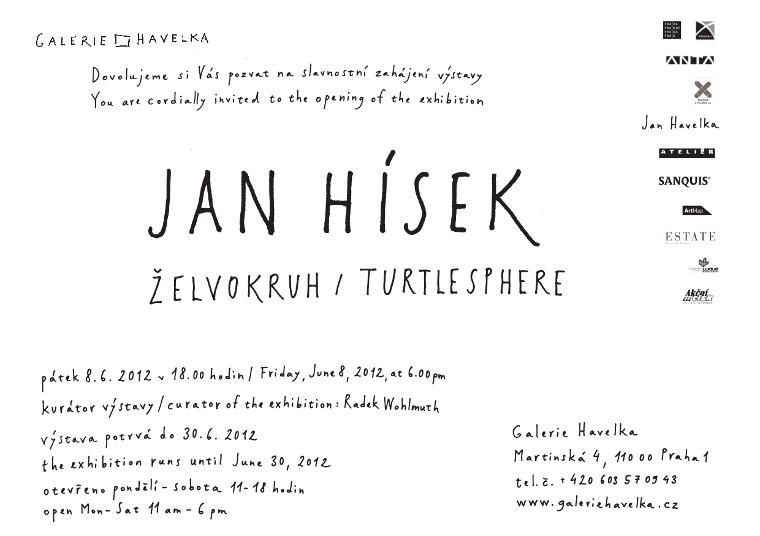 GALERIE HAVELKA
Dovolujeme si Vás pozvat na slavnostní zahájení výstavy
You are cordially invited to the opening of the exhibition
JAN HÍSEK
ŽELVOKRUH / TURTLESPHERE
pátek 8.6. 2012 v 18.00 hodin / Friday, June 8, 2012, at 6.00 pm
kurátor výstavy / curator of the exhibition: Radek Wohlmuth
výstava potrvá do 30.6. 2012
the exhibition runs until June 30, 2012
otevřeno pondělí - sobota 11-18 hodin
open Mon-Sat 11 am - 6 pm
Galerie Havelka
Martinská 4, 110 00 Praha 1
tel.č. +420 603 57 09 43
www.galeriehavelka.cz
ANTA
Jan Havelka
ATELIÉR
SANQUIS
ArtMap
ESTATE
Akční